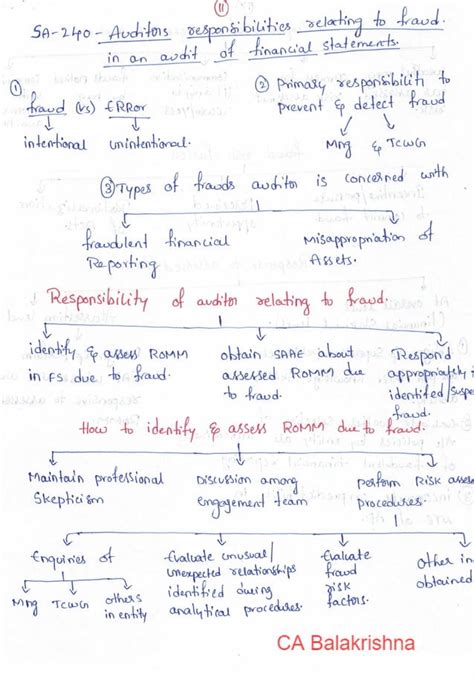 (11)
SA-240 - Auditors responsibilities relating to fraud.
in an audit of financial statements.
① fraud (vs) ERROR
intentional unintentional.
② Primary responsibiliti to
prevent & detect fraud
Mng & TCWG
③ Types of frauds auditor is concerned with
fraudulent financial
Reporting
Misappropriation of
Assets.
Responsibility of auditor relating to fraud.
identify & assess ROMM
in FS due to fraud.
obtain SAAE about
assessed ROMM due
to fraud.
Respond
appropriately
identified/
fraud.
How to identify & assess ROMM due to fraud.
Maintain professional
Skepticism
Discussion among
engagement team
perform Risk
procedures.
Enquiries of
Mng TCWG others
in entity
Evaluate unusual/
unexpected relationships
identified during
analytical procedures.
Evaluate
fraud
risk
factors.
Other
obtained
CA Balakrishna